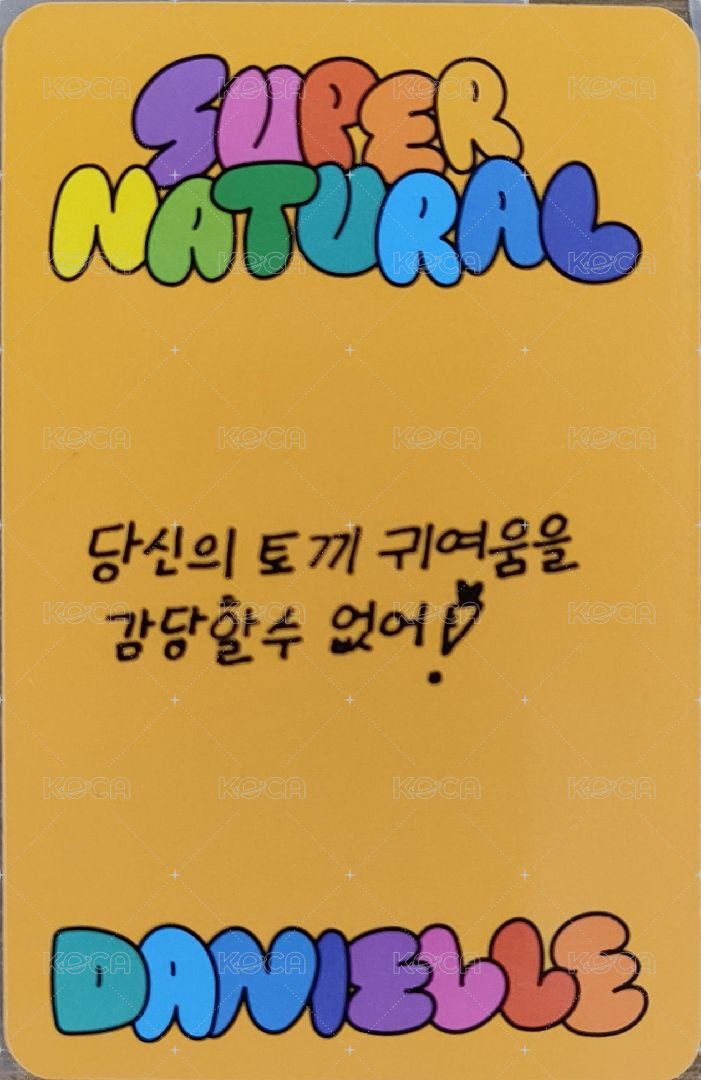 SUPER
NATURAL
당신의 토끼 귀여움을
감당할수 없어!
DANIELLE
KOCA